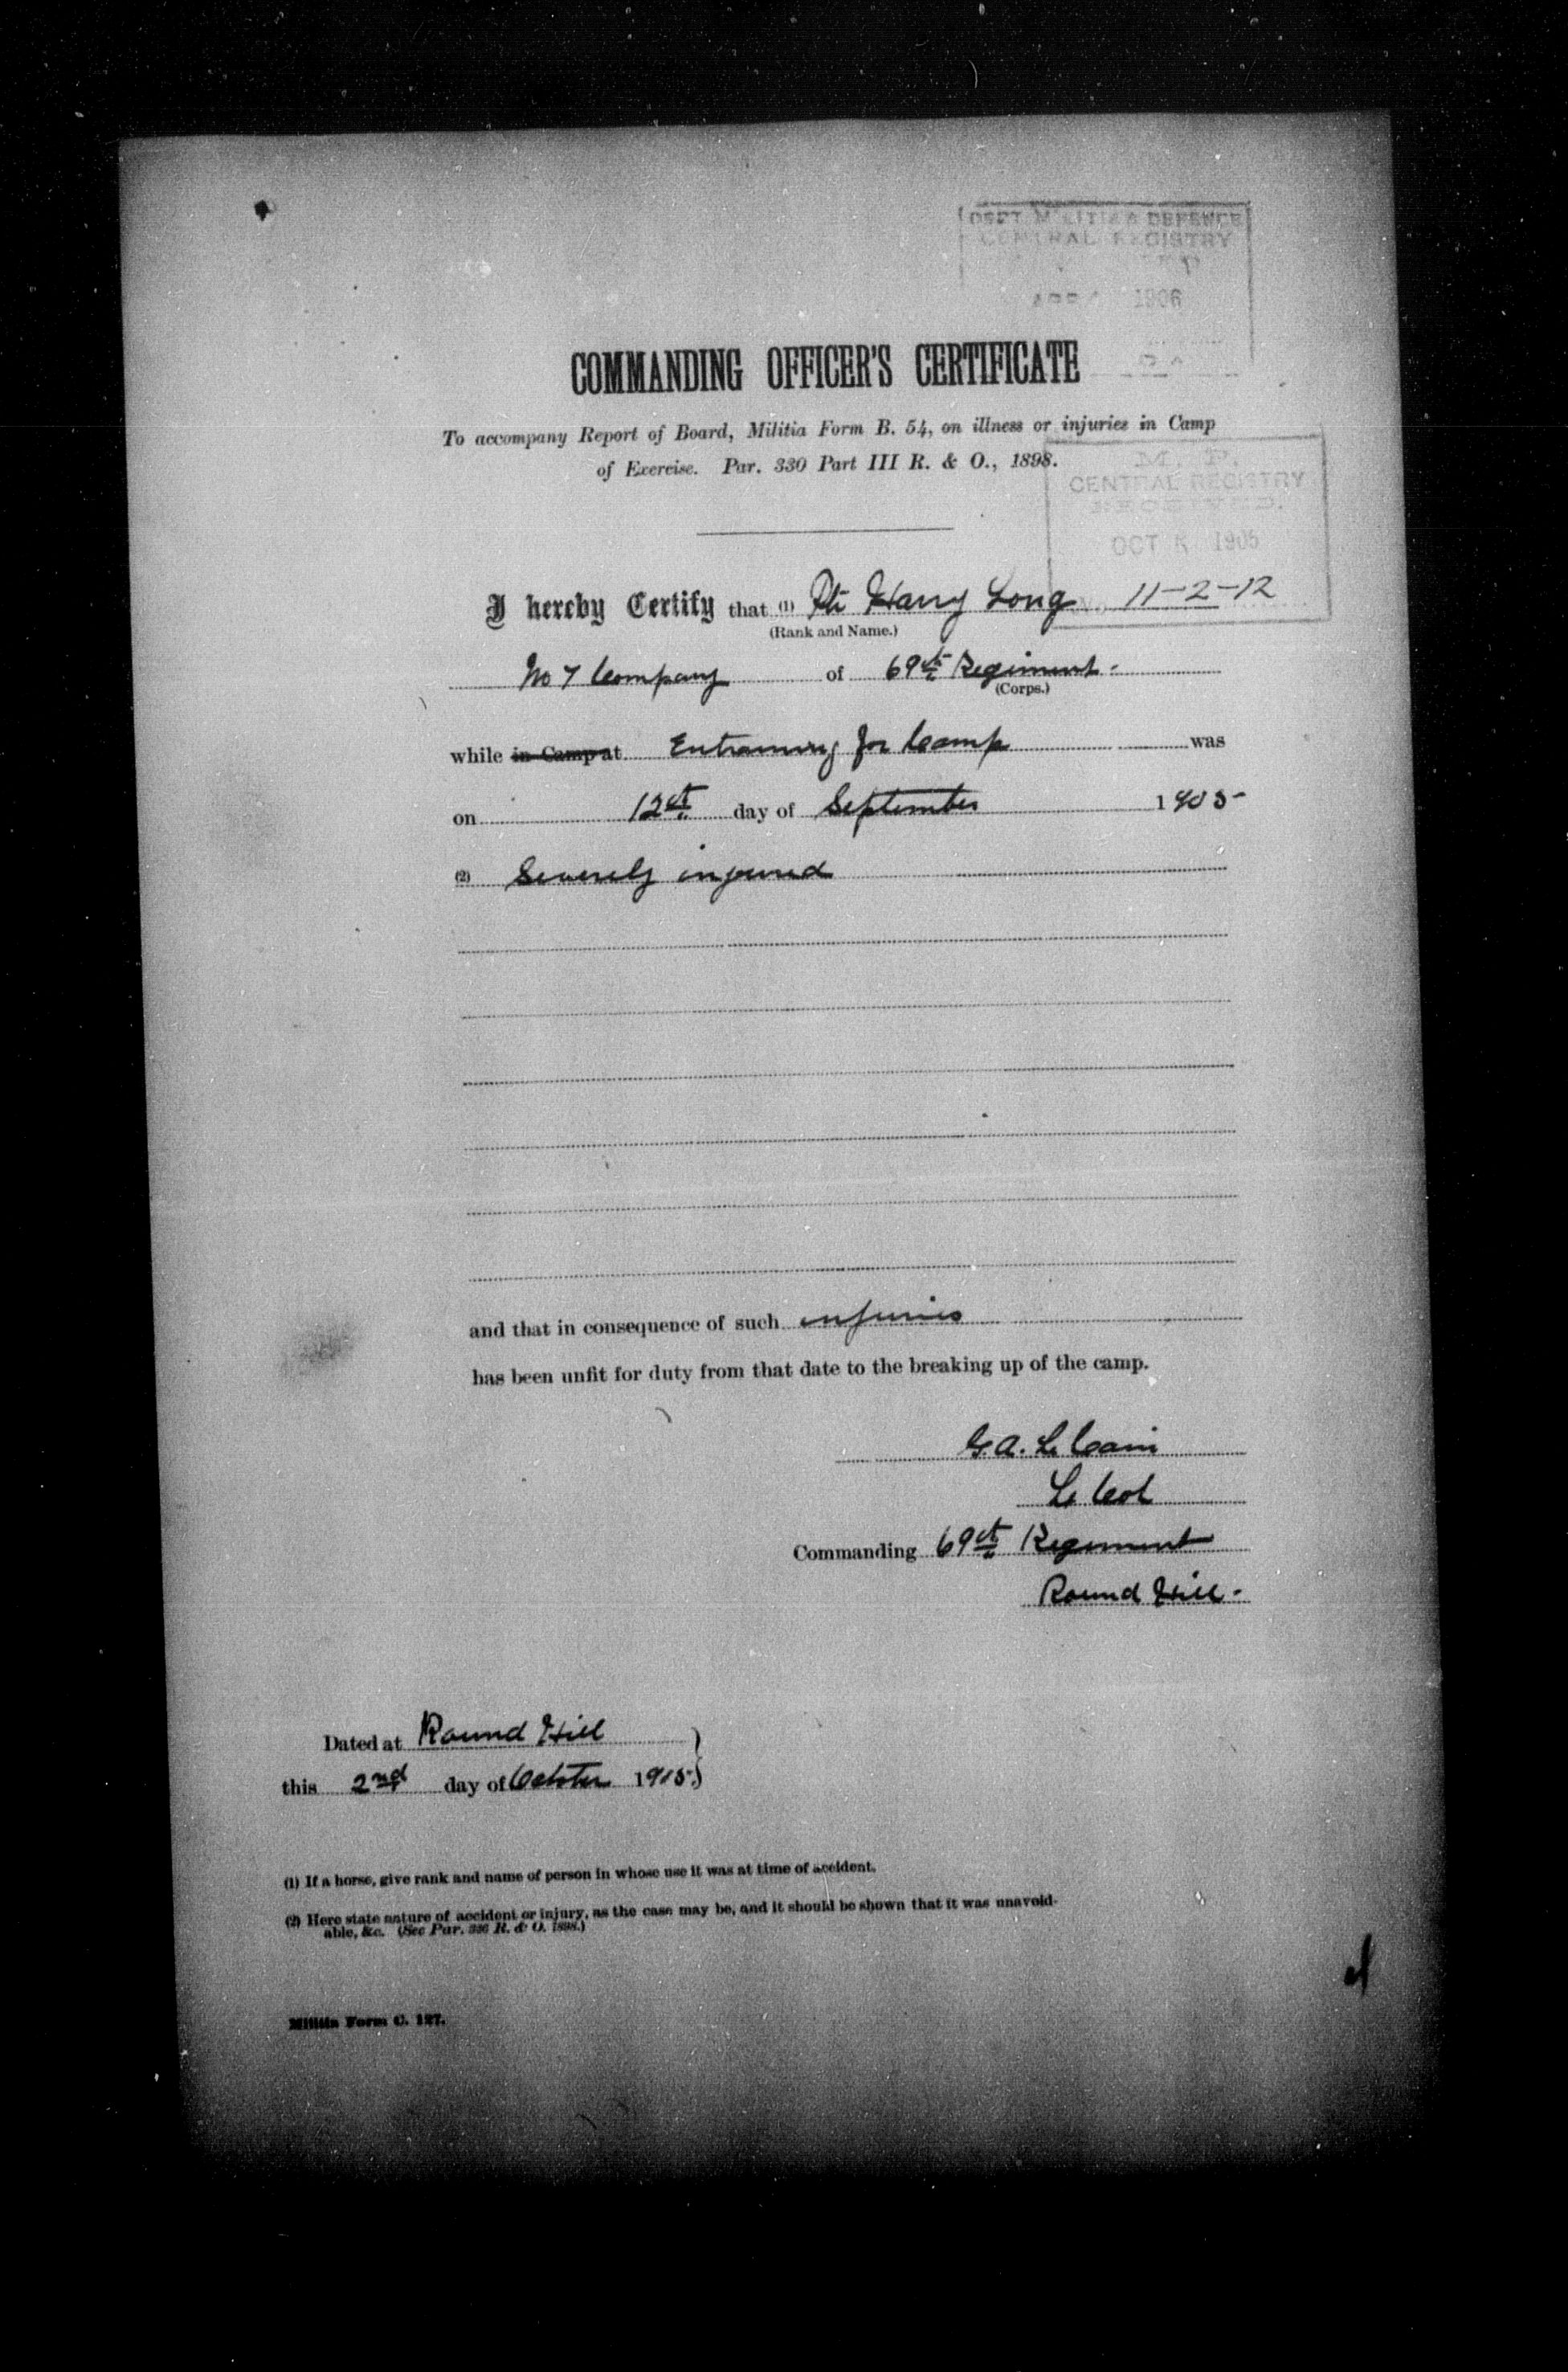 DEPT MILITIA & DEFENCE
CENTRAL REGISTRY
1906
COMMANDING OFFICER'S CERTIFICATE
To accompany Report of Board, Militia Form B. 54, on illness or injuries in Camp
of Exercise. Par. 330 Part III R. & O., 1898.
M. P.
CENTRAL REGISTRY
RECEIVED.
OCT 5 1905
11-2-12
I hereby Certify that (1) Pte Harry Long
(Rank and Name.)
No 7 Company of 69th Regiment.
(Corps.)
while in Camp at Entraining for Camp was
on 12th day of September 1905
(2) Severely injured
and that in consequence of such injuries
has been unfit for duty from that date to the breaking up of the camp.
G. A. LeCain
Lt Col
Commanding 69th Regiment
Round Hill.
Dated at Round Hill
this 2nd day of October 1905
(1) If a horse, give rank and name of person in whose use it was at time of accident.
(2) Here state nature of accident or injury, as the case may be, and it should be shown that it was unavoid-
able, &c. (See Par. 336 R. & O. 1898.)
Militia Form C. 127.